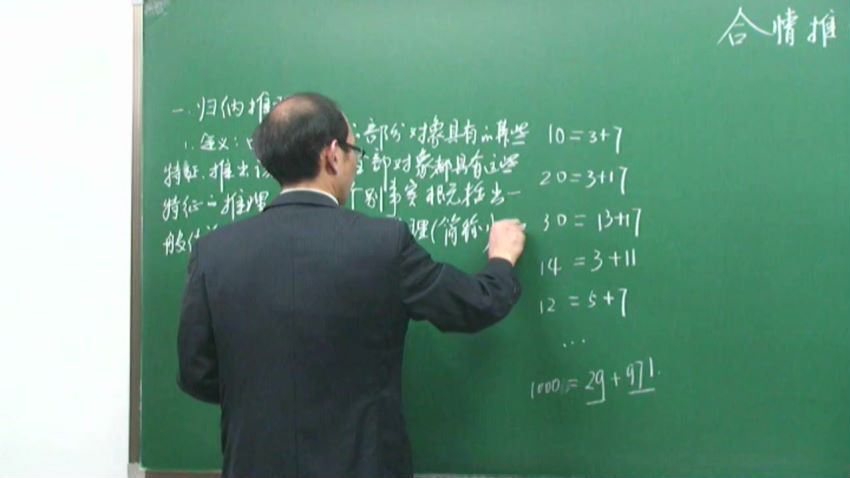 合情推
一.归纳推
1.定义: 部分对象具有的某些
特征,推出该 全部对象都具有这些
特征的推理 个别事实概括出一
般结论 理(简称归
10=3+7
20=3+17
30=13+17
14=3+11
12=5+7
...
1000=29+971.